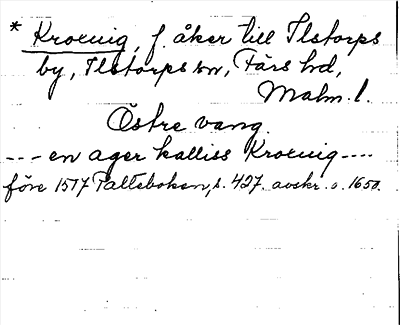 * Kroenig, f. åker till Ilstorps
by, Ilstorps sn, Färs hd,
Malm. l.
Östre vang.
--- en ager kalliss Kroenig ----
före 1517 Palteboken, s. 427. avskr. o. 1650.